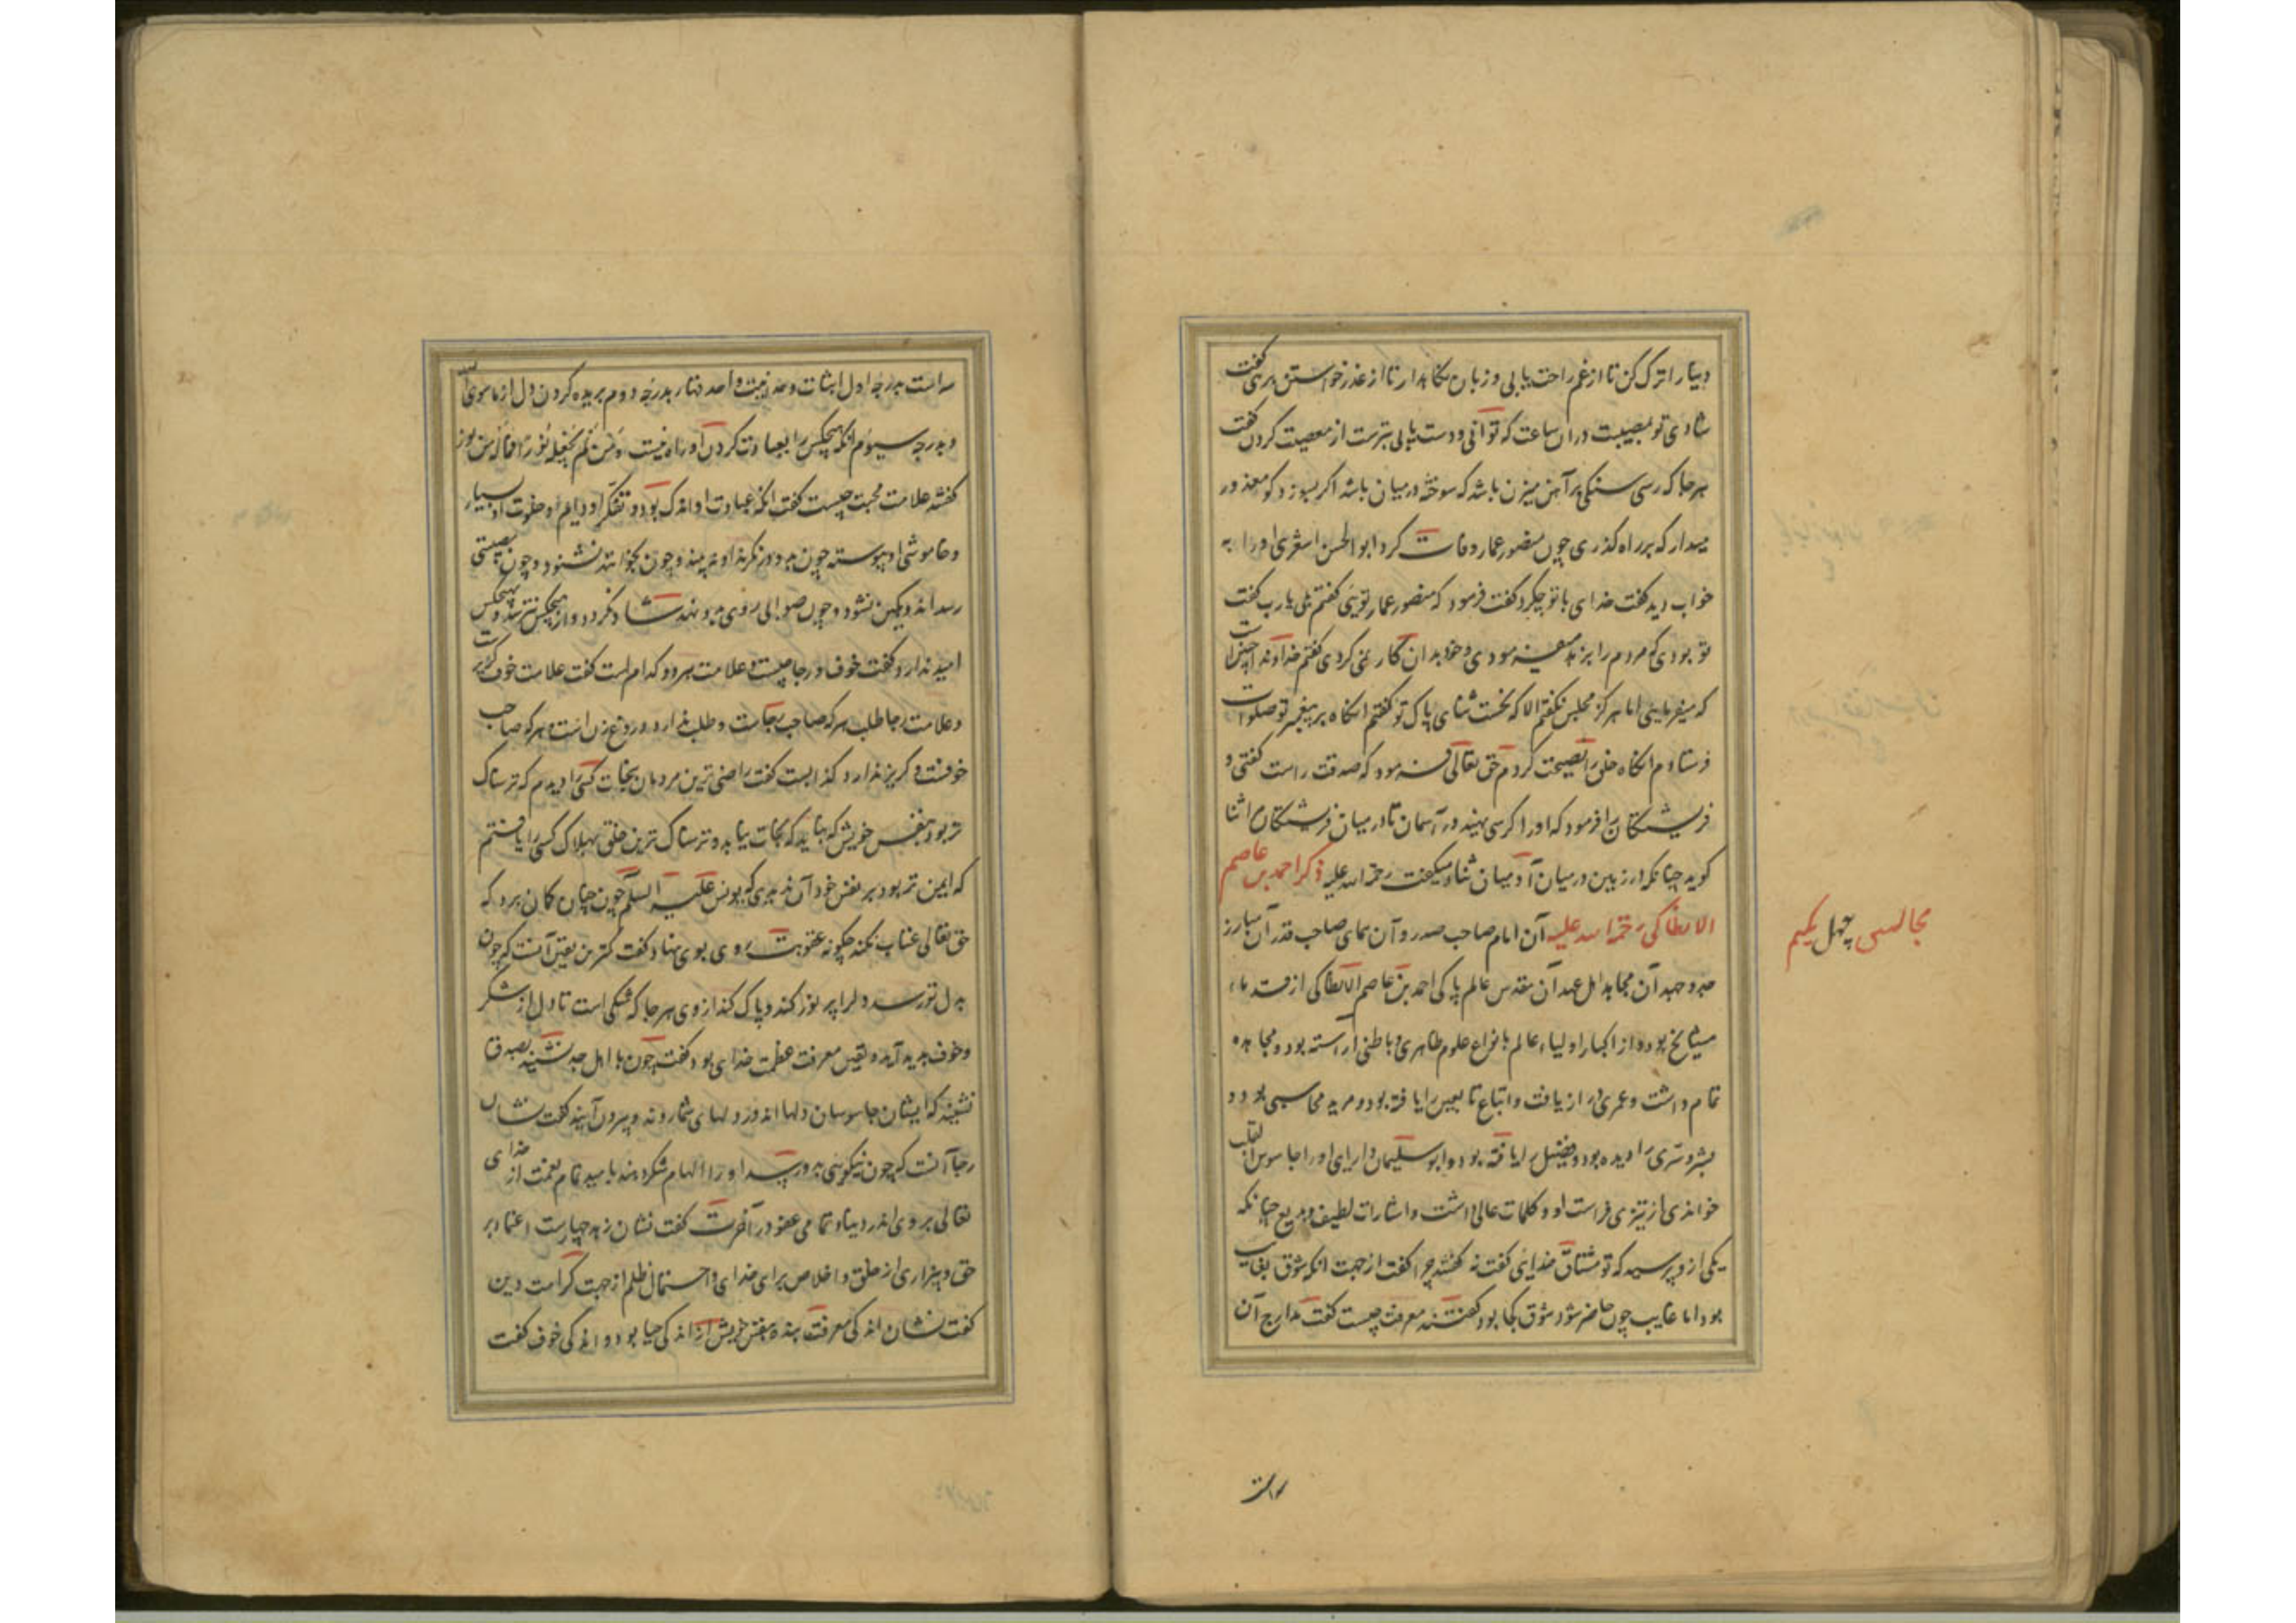 دنیا را ترک کن تا از غم راحت یابی و زبان نگاه دار تا از عذر خواستن برهی گفت
شادی تو بمصیبت در آن ساعت که توانی و دست یابی بترست از معصیت کردن گفت
هر جا که رسی سنگی بر آهن میزن باشد که سوخته در میان باشد اگر بسوزد کو معذور
میدار که بر راه گذری چون منصور عمار وفات کرد ابو الحسن اشعری او را به
خواب دید گفت خدای با تو چکرد گفت فرمود که منصور عمار توینی گفتم بلی یا رب گفت
تو بودی که مردم را بزهد میفرمودی و خود بدان کار نمی کردی گفتم خداوندا چنین است
که میفرمایینی اما هرگز مجلس نگفتم الا که نخست ثنای پاک تو گفتم انگاه بر پیغمبر تو صلوات
فرستادم انگاه خلق را نصیحت کردم حق تعالی فرمود که صدقت راست گفتی و
فریشتگان را فرمود که او را کرسی بنهید در آسمان تا در میان فریشتگان ما ثنا
گوید چنانکه در زمین در میان آدمیان ثنا میگفت رحمة الله علیه ذکر احمد بن عاصم
الانطاکی رحمة الله علیه آن امام صاحب صدر و آن همای صاحب قدر آن مبارز
جد و جهد آن مجاهد اهل عهد آن مقدس عالم پاکی احمد بن عاصم الانطاکی از قدماء
مشایخ بوده از کبار اولیاء عالم بانواع علوم ظاهری و باطنی آراسته بود و مجاهده
تمام داشت و عمری دراز یافت و اتباع تابعین را یافته بود و مرید محاسبی بود و
بشر و سری را دیده بود و فضیل را یافته بود و ابو سلیمان دارای او را جاسوس القلب
خواندی از تیزی فراست او و کلمات عالی داشت و اشارات لطیف و بدیع چنانکه
یکی از و پرسید که تو مشتاق خدایی گفت نه گفتند چرا گفت از جهت انکه شوق بغایب
بود اما غایب چون حاضر شود شوق کجا بود گفتند معرفت چیست گفت مدارج آن
مجالس چهل یکم
سه است
سه است بدرجه اول اثبات وحدانیت واحد قهار بدرجه دوم بریده کردن دل از ماسوی الله
و بدرجه سیوم انکه هیچکس را بعبادت کردن او راه نیست و من لم یجعل الله له نورا فما له من نور
گفتند علامت محبت چیست گفت انکه عبادت او اندک بود و تفکر او دایم و خلوت او بسیار
و خاموشی او پیوسته چون بدو در نگرند او نه بیند و چون بخوانند نشنود و چون مصیبتی
رسد اندوهگین نشود و چون صوابی روی بدو نهد شاد نگردد و از هیچکس نترسد و بهیچکس
امید ندارد گفت خوف و رجا چیست و علامت هر دو کدام است گفت علامت خوف گریز است
و علامت رجا طلب هر که صاحب رجاست و طلب ندارد دروغ زن است و هر که صاحب
خوفست و گریز ندارد کذابست گفت راضی ترین مردمان بنجات کسی را دیدم که ترسناک
تر بود بنفس خویش که نباید که نجات نیابد و ترسناک ترین خلق بهلاک کسی را یافتم
که ایمن تر بود بر نفس خود آن ندیدی که یونس علیه السلم چون چنان گمان برد که
حق تعالی عتاب نکند چگونه عقوبت روی بوی نهاد گفت کمترین یقین آنست که چون
بدل تو رسد دل را پر نور کند و پاک کند از وی هر جا که شکی است تا دل از شکر
و خوف پدید آید و یقین معرفت عظمت خدای بود گفت چون با اهل صدق نشینید بصدق
نشینید که ایشان جاسوسان دلها اند در دلهای شما روند و بیرون آیند گفت نشان
رجا آنست که چون نیکویی بدو رسد او را الهام شکر دهند بامید تمام نعمت از خدای
تعالی بر وی اندر دنیا و تمامی عفو در آخرت گفت نشان زهد چهارست اعتماد بر
حق و بیزاری از خلق و اخلاص برای خدای و احتمال ظلم از جهت کرامت دین
گفت نشان اندکی معرفت بنده بنفس خویش از اندکی حیا بود و اندکی خوف گفت